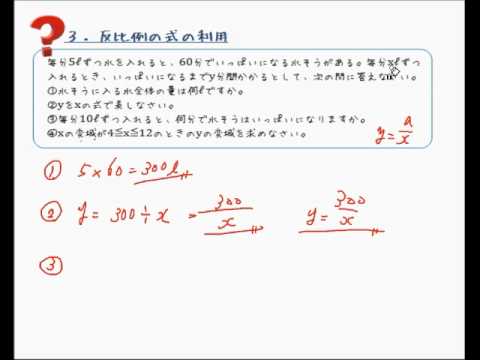 ?
3．反比例の式の利用
毎分5ℓずつ水を入れると、60分でいっぱいになる水そうがある。毎分xℓずつ
入れるとき、いっぱいになるまでy分間かかるとして、次の問に答えなさい。
①水そうに入る水全体の量は何ℓですか。
②yをxの式で表しなさい。
③毎分10ℓずつ入れると、何分で水そうはいっぱいになりますか。
④xの変域が4≦x≦12のときのyの変域を求めなさい。
y=a/x
① 5×60=300ℓ
② y=300÷x =300/x y=300/x
③